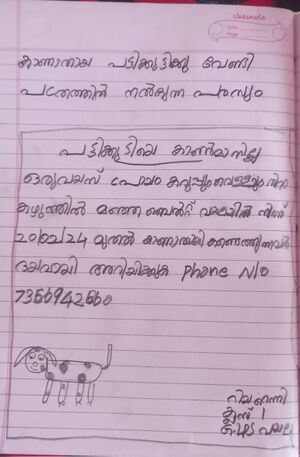 classmate
Date
Page
കാണാതായ പട്ടിക്കുട്ടിക്കു വേണ്ടി
പത്രത്തിൽ നൽകുന്ന പരസ്യം
പട്ടിക്കുട്ടിയെ കാൺമാനില്ല
ഒരുവയസ് പ്രായം കറുപ്പും വെള്ളയും നിറം
കഴുത്തിൽ മഞ്ഞ ബെൽറ്റ് നിന്ന്
20/02/24 മുതൽ കാണാതായി കണ്ടെത്തുന്നവർ
ദയവായി അറിയിക്കുക Phone No
7356942660
ക്ലാസ് 1